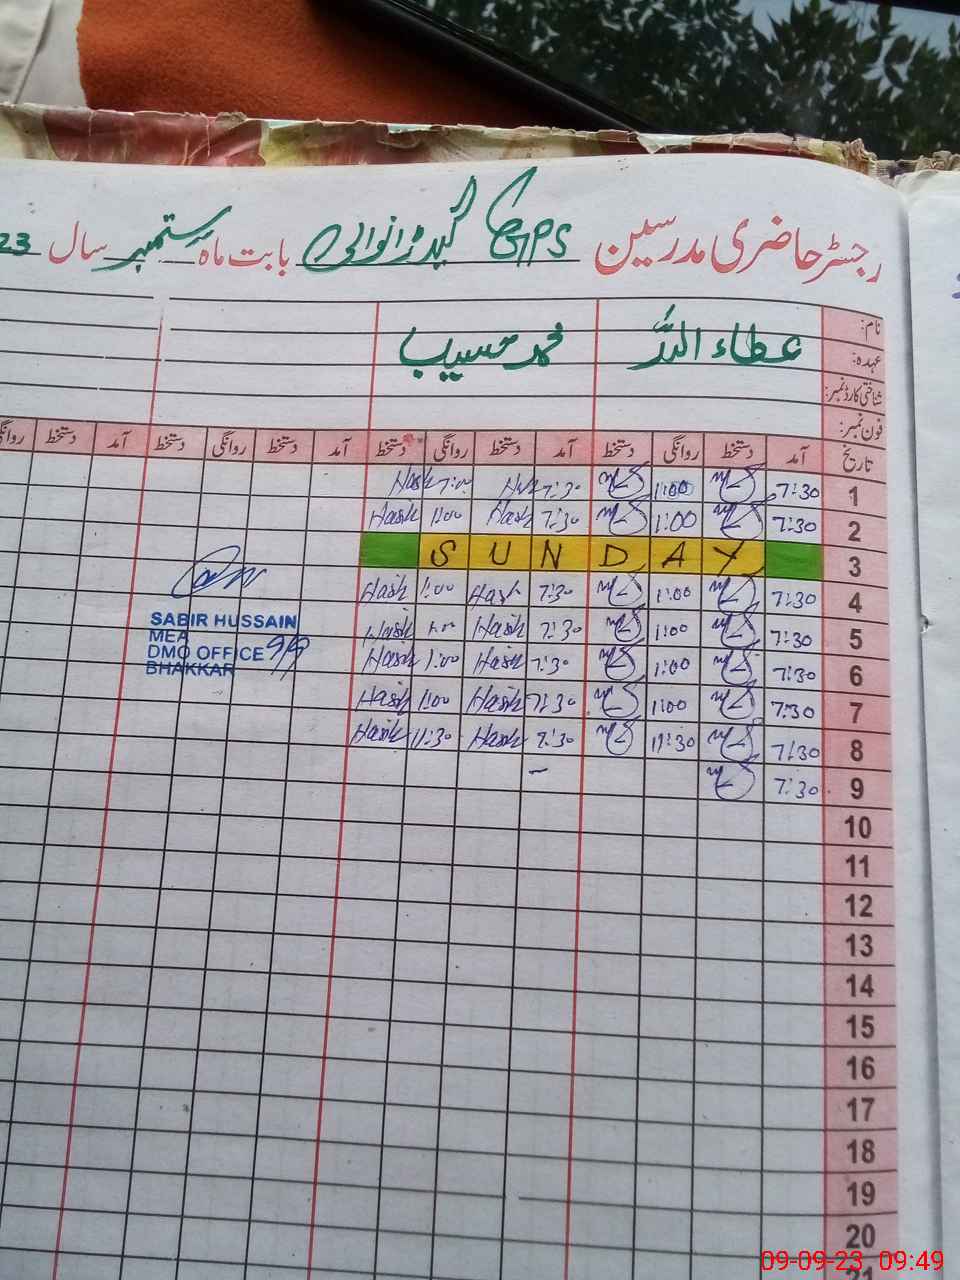 رجسٹر حاضری مدرسین GPS گیدڑانوالی بابت ماہ ستمبر سال 23
نام: عطاء اللہ محمد حسیب
عہدہ:
شناختی کارڈ نمبر:
فون نمبر:
تاریخ آمد دستخط روانگی دستخط آمد دستخط روانگی دستخط آمد دستخط روانگی دستخط آمد دستخط روانگی
1 7:30 1:00 7:30
2 7:30 1:00 7:30 Hasib 1:00 Hasib
3 SUNDAY
4 7:30 1:00 Hasib 7:30 1:00 Hasib
5 7:30 1:00 7:30 Hasib Hasib
6 7:30 1:00 7:30 Hasib 1:00 Hasib
7 7:30 1:00 7:30 Hasib 1:00 Hasib
8 7:30 11:30 7:30 Hasib 11:30 Hasib
9 7:30
10
11
12
13
14
15
16
17
18
19
20
21
SABIR HUSSAIN
MEA
DMO OFFICE 9/9
BHAKKAR
09-09-23 09:49